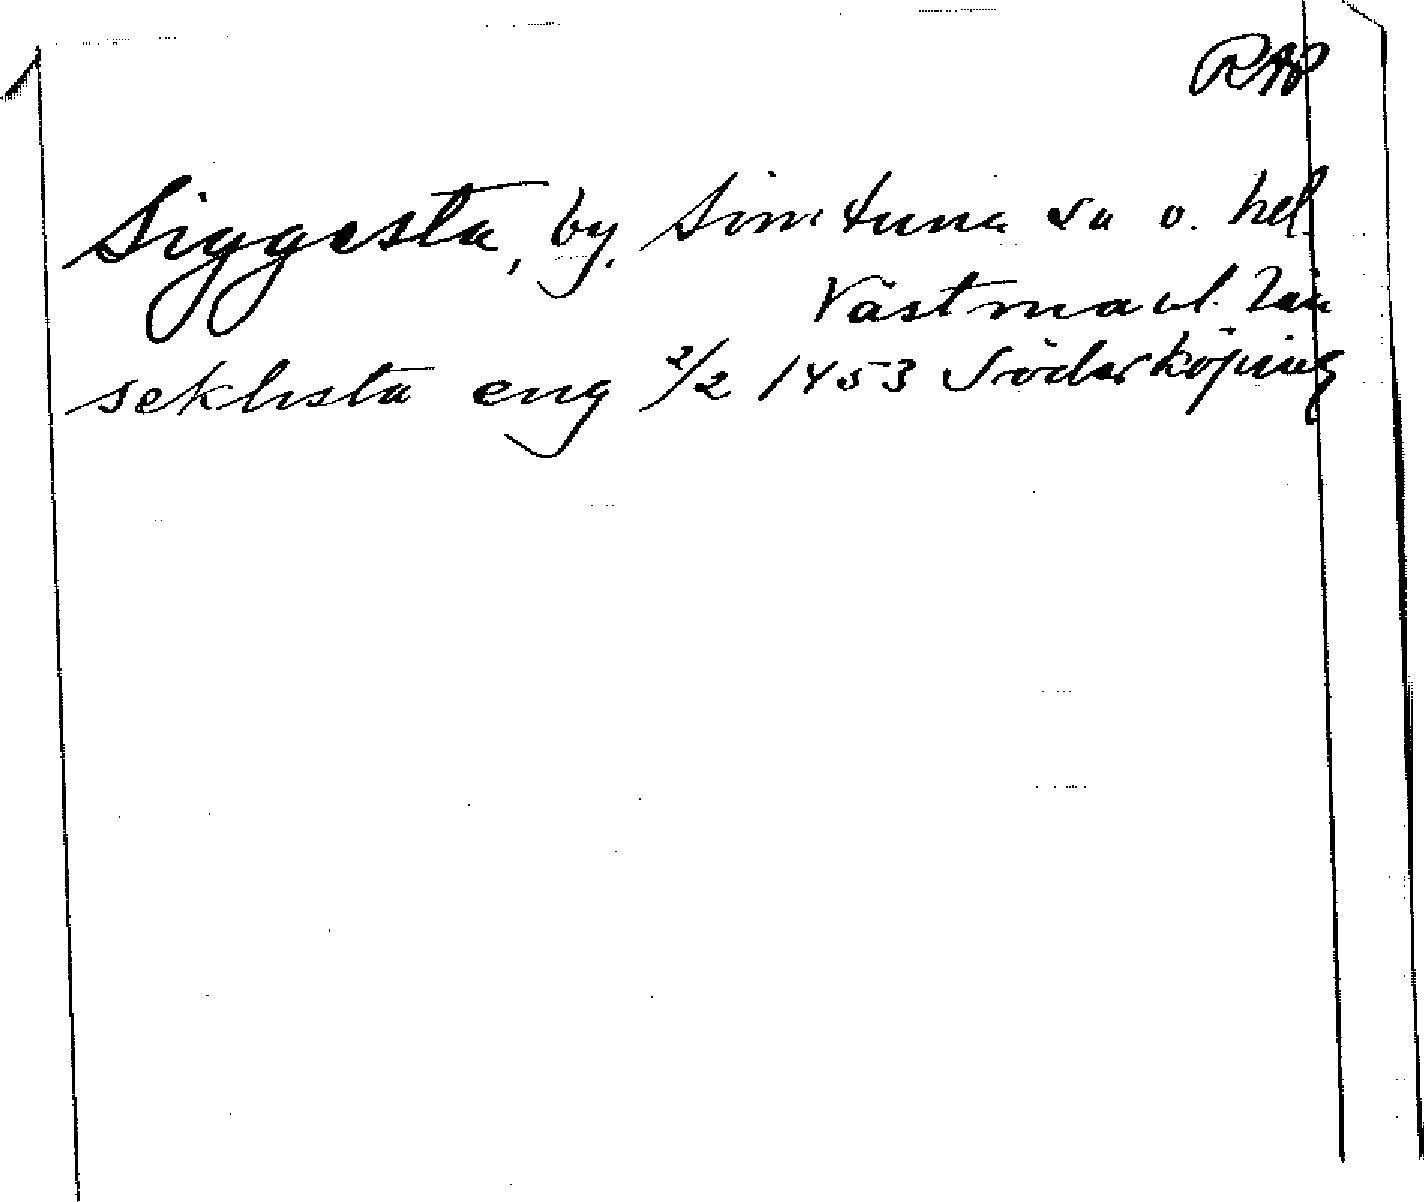 RAP
Siggesta, by, Simtuna sn o. hd.
Västmanl. län
sekhsta eng 2/2 1453 Söderköping